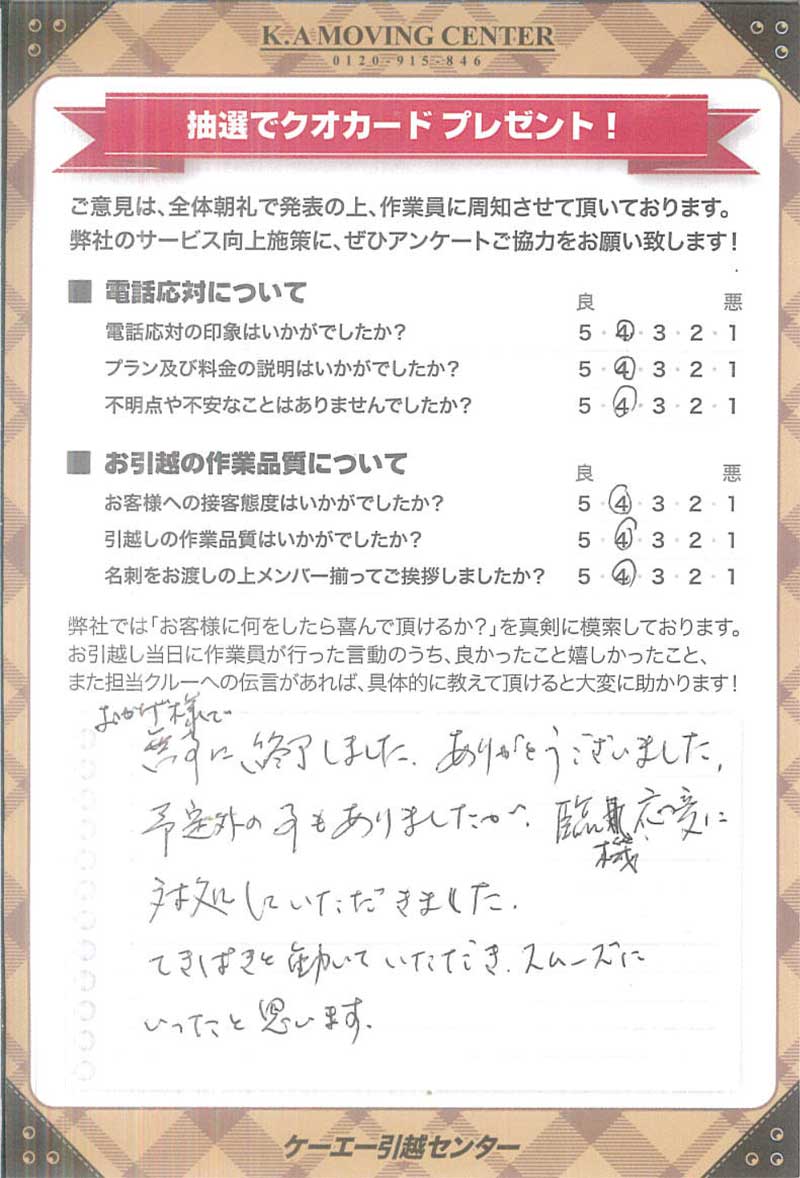 K.A MOVING CENTER
0120-915-846
抽選でクオカード プレゼント！
ご意見は、全体朝礼で発表の上、作業員に周知させて頂いております。
弊社のサービス向上施策に、ぜひアンケートご協力をお願い致します！
■ 電話応対について
良 悪
電話応対の印象はいかがでしたか？ 5・4・3・2・1
プラン及び料金の説明はいかがでしたか？ 5・4・3・2・1
不明点や不安なことはありませんでしたか？ 5・4・3・2・1
■ お引越の作業品質について
良 悪
お客様への接客態度はいかがでしたか？ 5・4・3・2・1
引越しの作業品質はいかがでしたか？ 5・4・3・2・1
名刺をお渡しの上メンバー揃ってご挨拶しましたか？ 5・4・3・2・1
弊社では「お客様に何をしたら喜んで頂けるか？」を真剣に模索しております。
お引越し当日に作業員が行った言動のうち、良かったこと嬉しかったこと、
また担当クルーへの伝言があれば、具体的に教えて頂けると大変に助かります！
おかげ様で
無事に終了しました。ありがとうございました。
予定外の事もありましたが、臨機応変に
対処していただきました。
てきぱきと動いていただき、スムーズに
いったと思います。
ケーエー引越センター